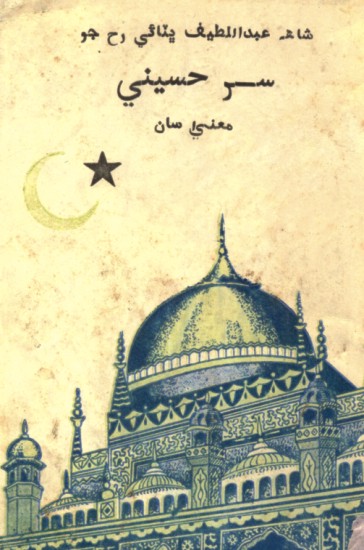 شاهه عبداللطيف ڀٽائي رح جو
سر حسيني
معنيٰ سان